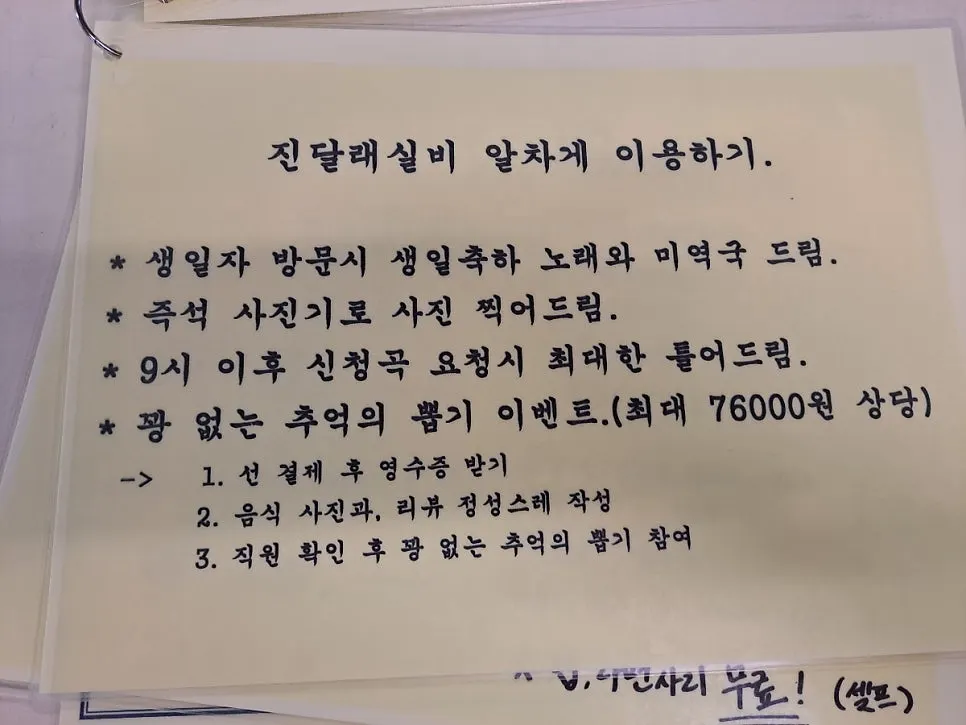 진달래실비 알차게 이용하기.
* 생일자 방문시 생일축하 노래와 미역국 드림.
* 즉석 사진기로 사진 찍어드림.
* 9시 이후 신청곡 요청시 최대한 틀어드림.
* 꽝 없는 추억의 뽑기 이벤트.(최대 76000원 상당)
-> 1. 선 결제 후 영수증 받기
2. 음식 사진과, 리뷰 정성스레 작성
3. 직원 확인 후 꽝 없는 추억의 뽑기 참여
무료! (셀프)